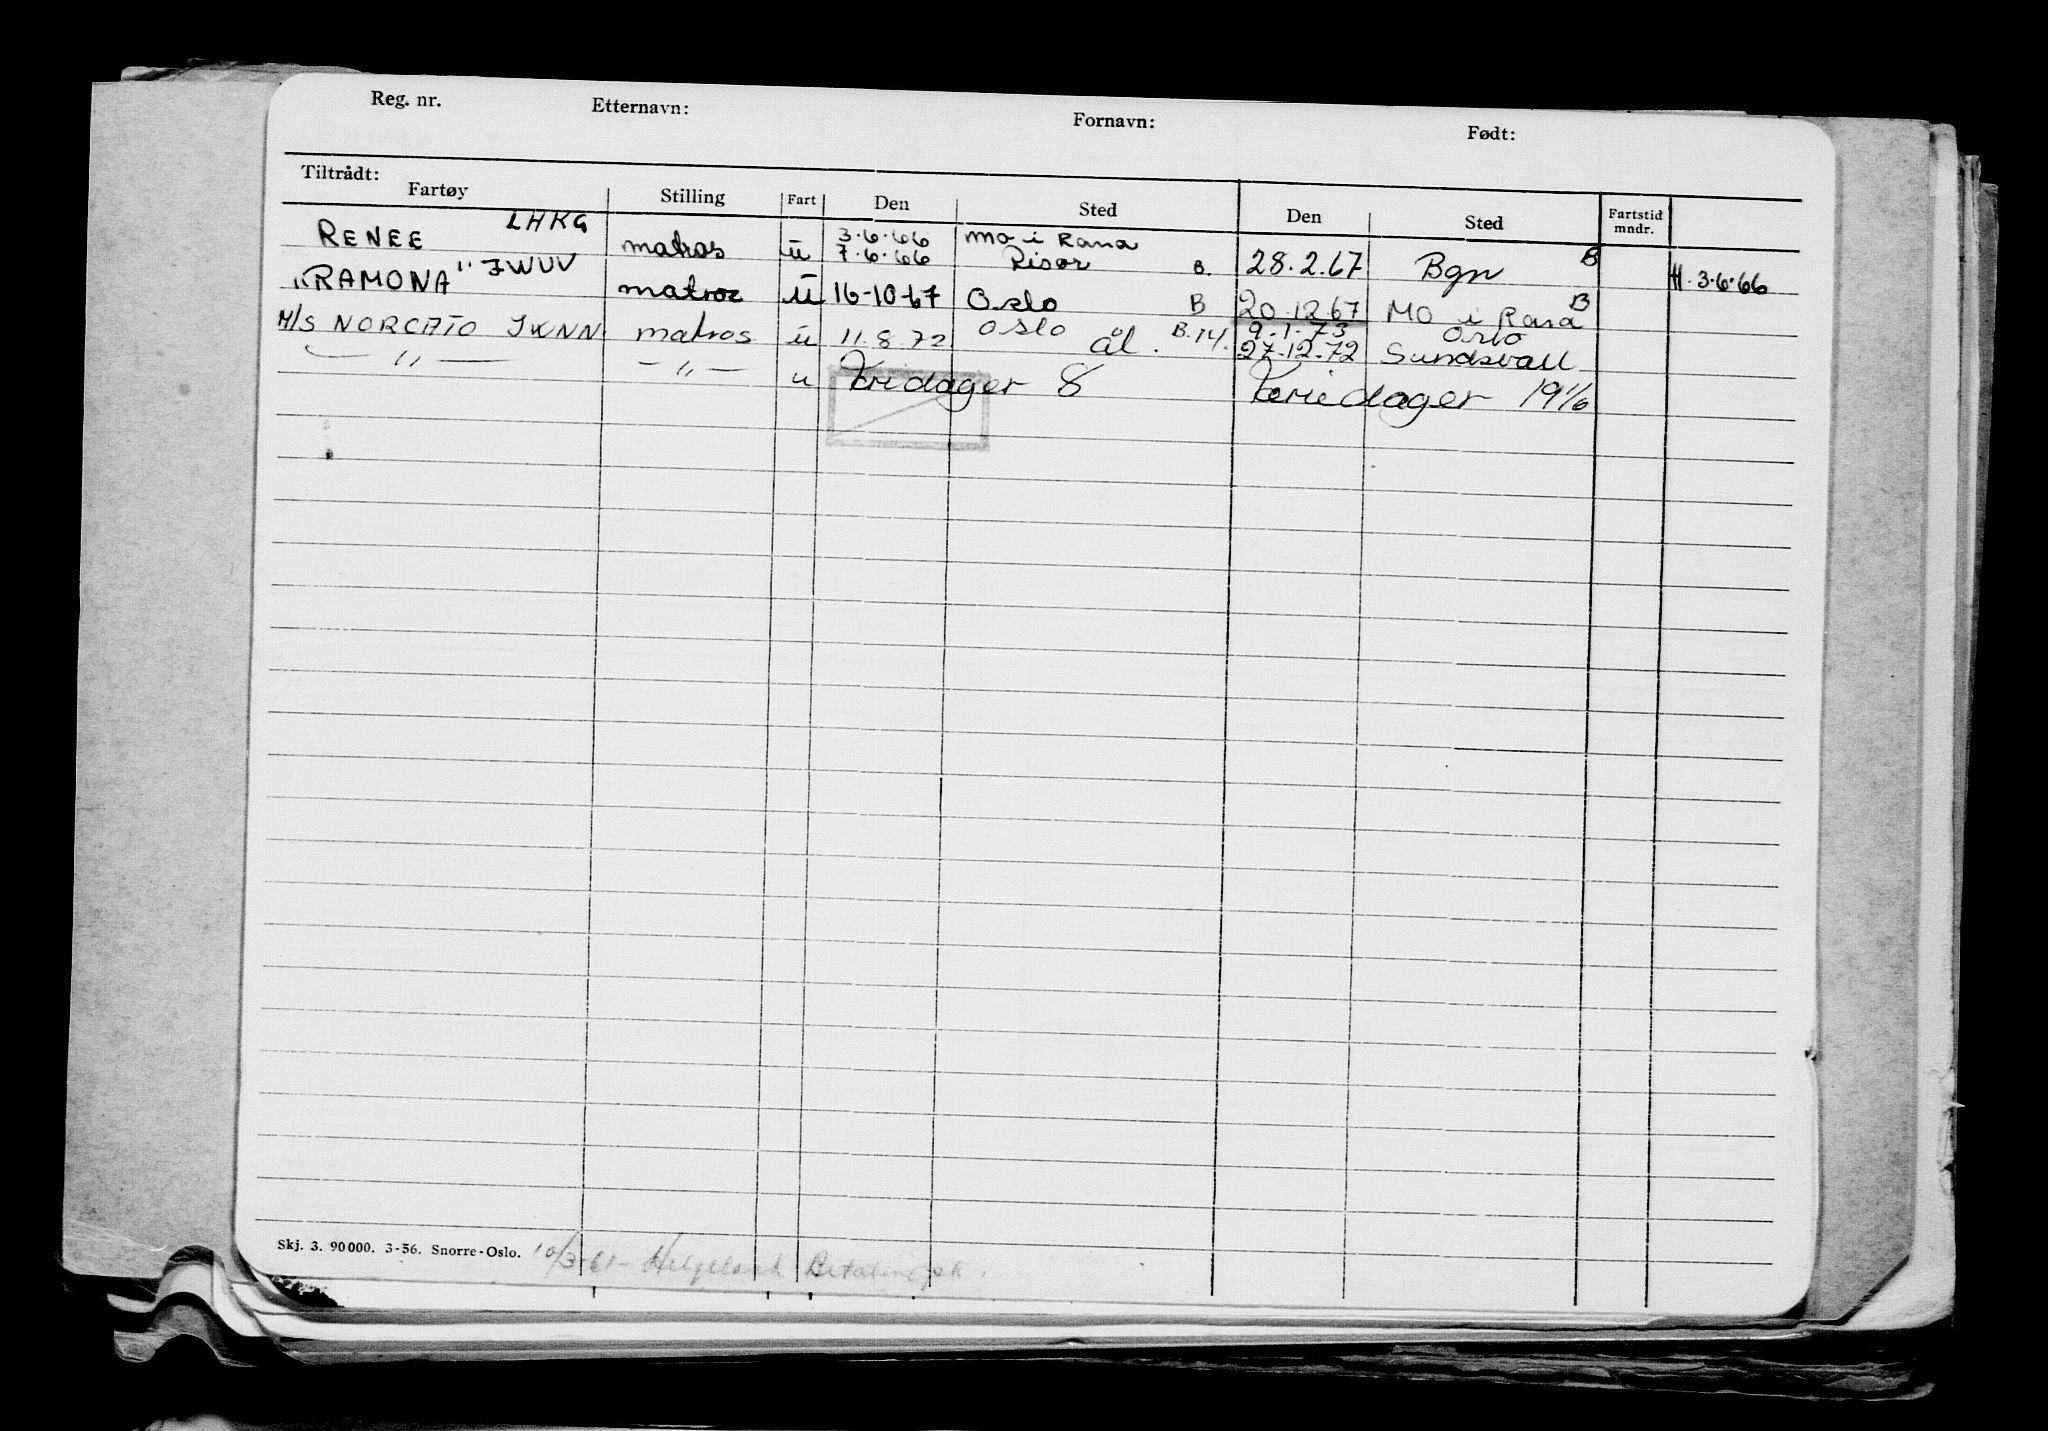 Reg. nr. Etternavn: Fornavn: Født:
Tiltrådt:
Fartøy Stilling Fart Den Sted Den Sted Fartstid mndr.
RENEE LHKG matros u 3.6.66 Mo i Rana
7.6.66 Risør B. 28.2.67 Bgn B H. 3.6.66
"RAMONA" JWUV matros u 16-10-67 Oslo B 20.12.67 MO i Rana B
M/S NORCATO JXNN matros u 11.8.72 Oslo öl. B.14. 9.1.73 Oslo
27.12.72 Sundsvall
— " — — " — u Fridager 8 Feriedager 19 1/6
Skj. 3. 90 000. 3-56. Snorre-Oslo. 10/3-61-